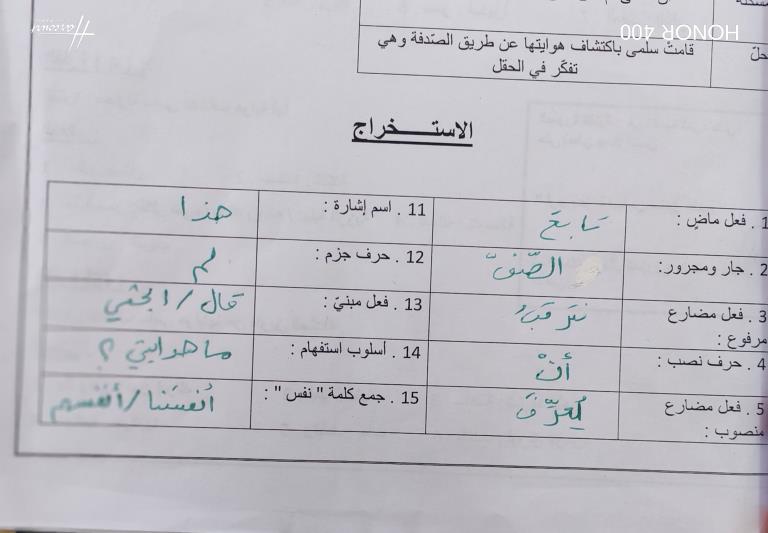 HONOR 400
حلّ
قامتْ سلمى باكتشاف هوايتها عن طريق الصّدفة وهي
تفكّر في الحقل
الاستـــخراج
1 . فعل ماضٍ :
تابعَ
11 . اسم إشارة :
هذا
2 . جار ومجرور:
الصّفّ
12 . حرف جزم :
لم
3 . فعل مضارع
مرفوع :
نترقبُ
13 . فعل مبنيّ :
قال /
4 . حرف نصب :
أنْ
14 . أسلوب استفهام :
ما هوايتي ؟
5 . فعل مضارع
منصوب :
يُعرّفَ
15 . جمع كلمة " نفس " :
أنفسنا / أنفسهم